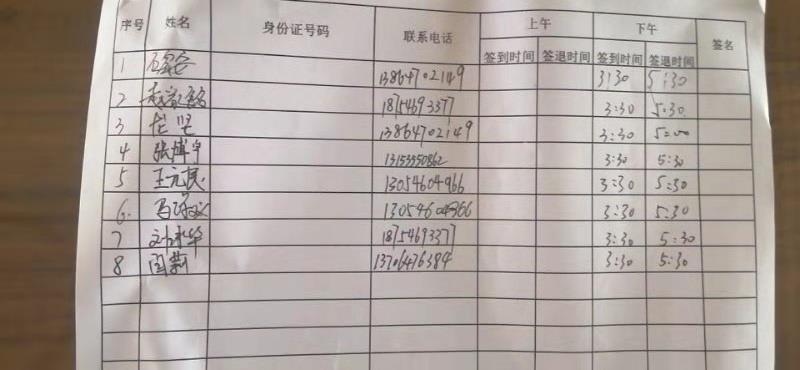 序号 姓名 身份证号码 联系电话 上午 下午 签名
签到时间 签退时间 签到时间 签退时间
1 13864702149 3:30 5:30
2 18754693377 3:30 5:30
3 龙坚 13864702149 3:30 5:00
4 张博宇 13153550862 3:30 5:30
5 王元良 13054604966 3:30 5:30
6. 13054604966 3:30 5:30
7 刘永华 18754693377 3:30 5:30
8 闫莉 13706476384 3:30 5:30